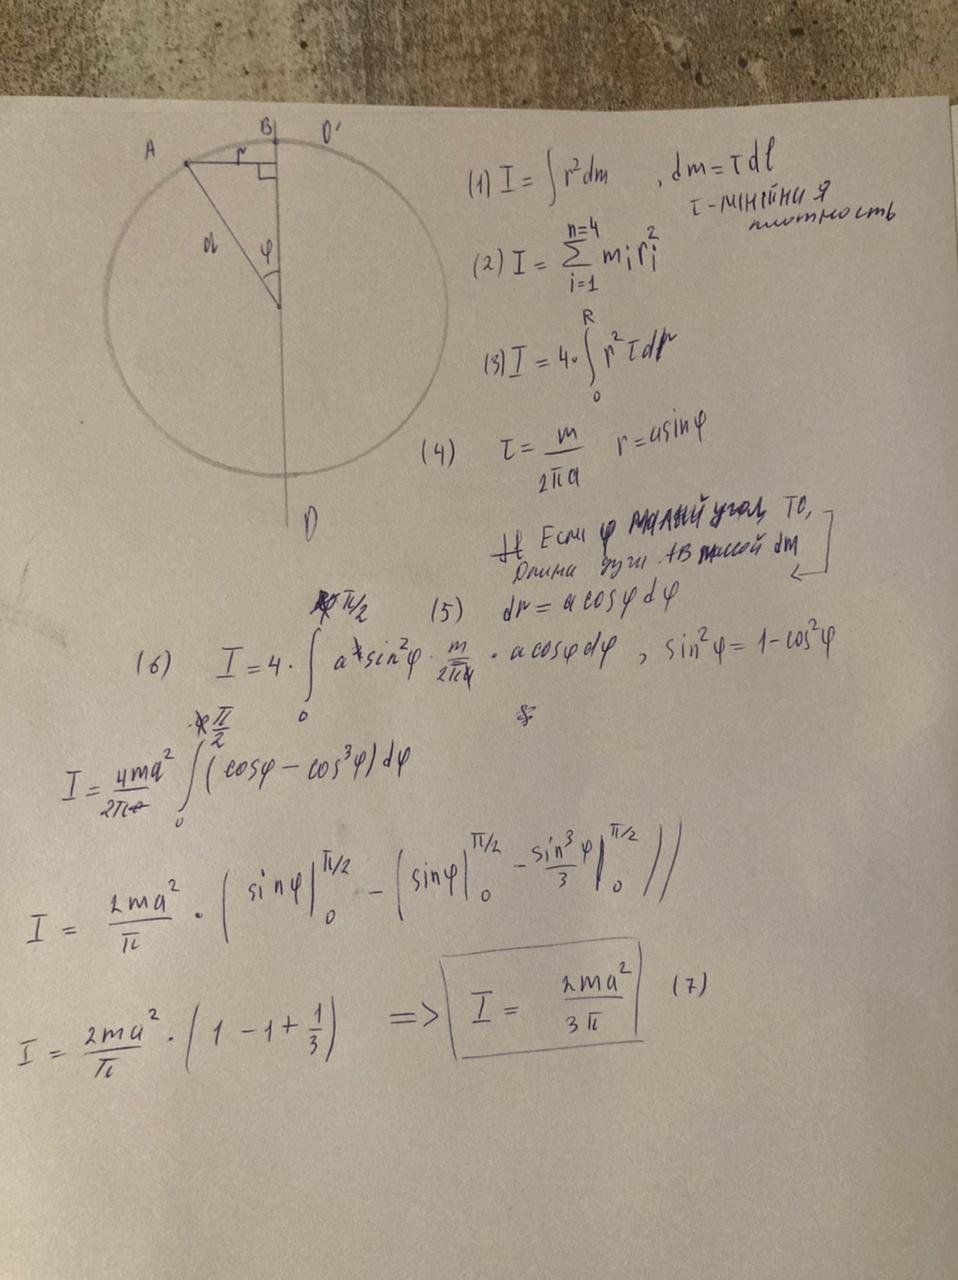 A r B O'
a φ
D
(1) I = ∫ r² dm , dm = τ dl
τ - линейная
плотность
(2) I = Σ_{i=1}^{n=4} m_i r_i²
(3) I = 4 · ∫_0^R r² τ dr
(4) τ = m / 2πa r = a sin φ
Если φ малый угол, то,
длина дуги AB массой dm
(5) dr = a cos φ dφ
(6) I = 4 · ∫_0^{π/2} a² sin² φ · m / 2πa · a cos φ dφ , sin² φ = 1 - cos² φ
I = 4ma² / 2π ∫_0^{π/2} (cos φ - cos³ φ) dφ
I = 2ma² / π · ( sin φ |_0^{π/2} - ( sin φ |_0^{π/2} - sin³ φ / 3 |_0^{π/2} ))
I = 2ma² / π · ( 1 - 1 + 1/3 ) => I = 2ma² / 3π (7)